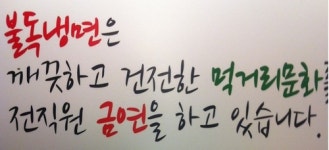 불독냉면은
깨끗하고 건전한 먹거리문화
전직원 금연을 하고 있습니다.